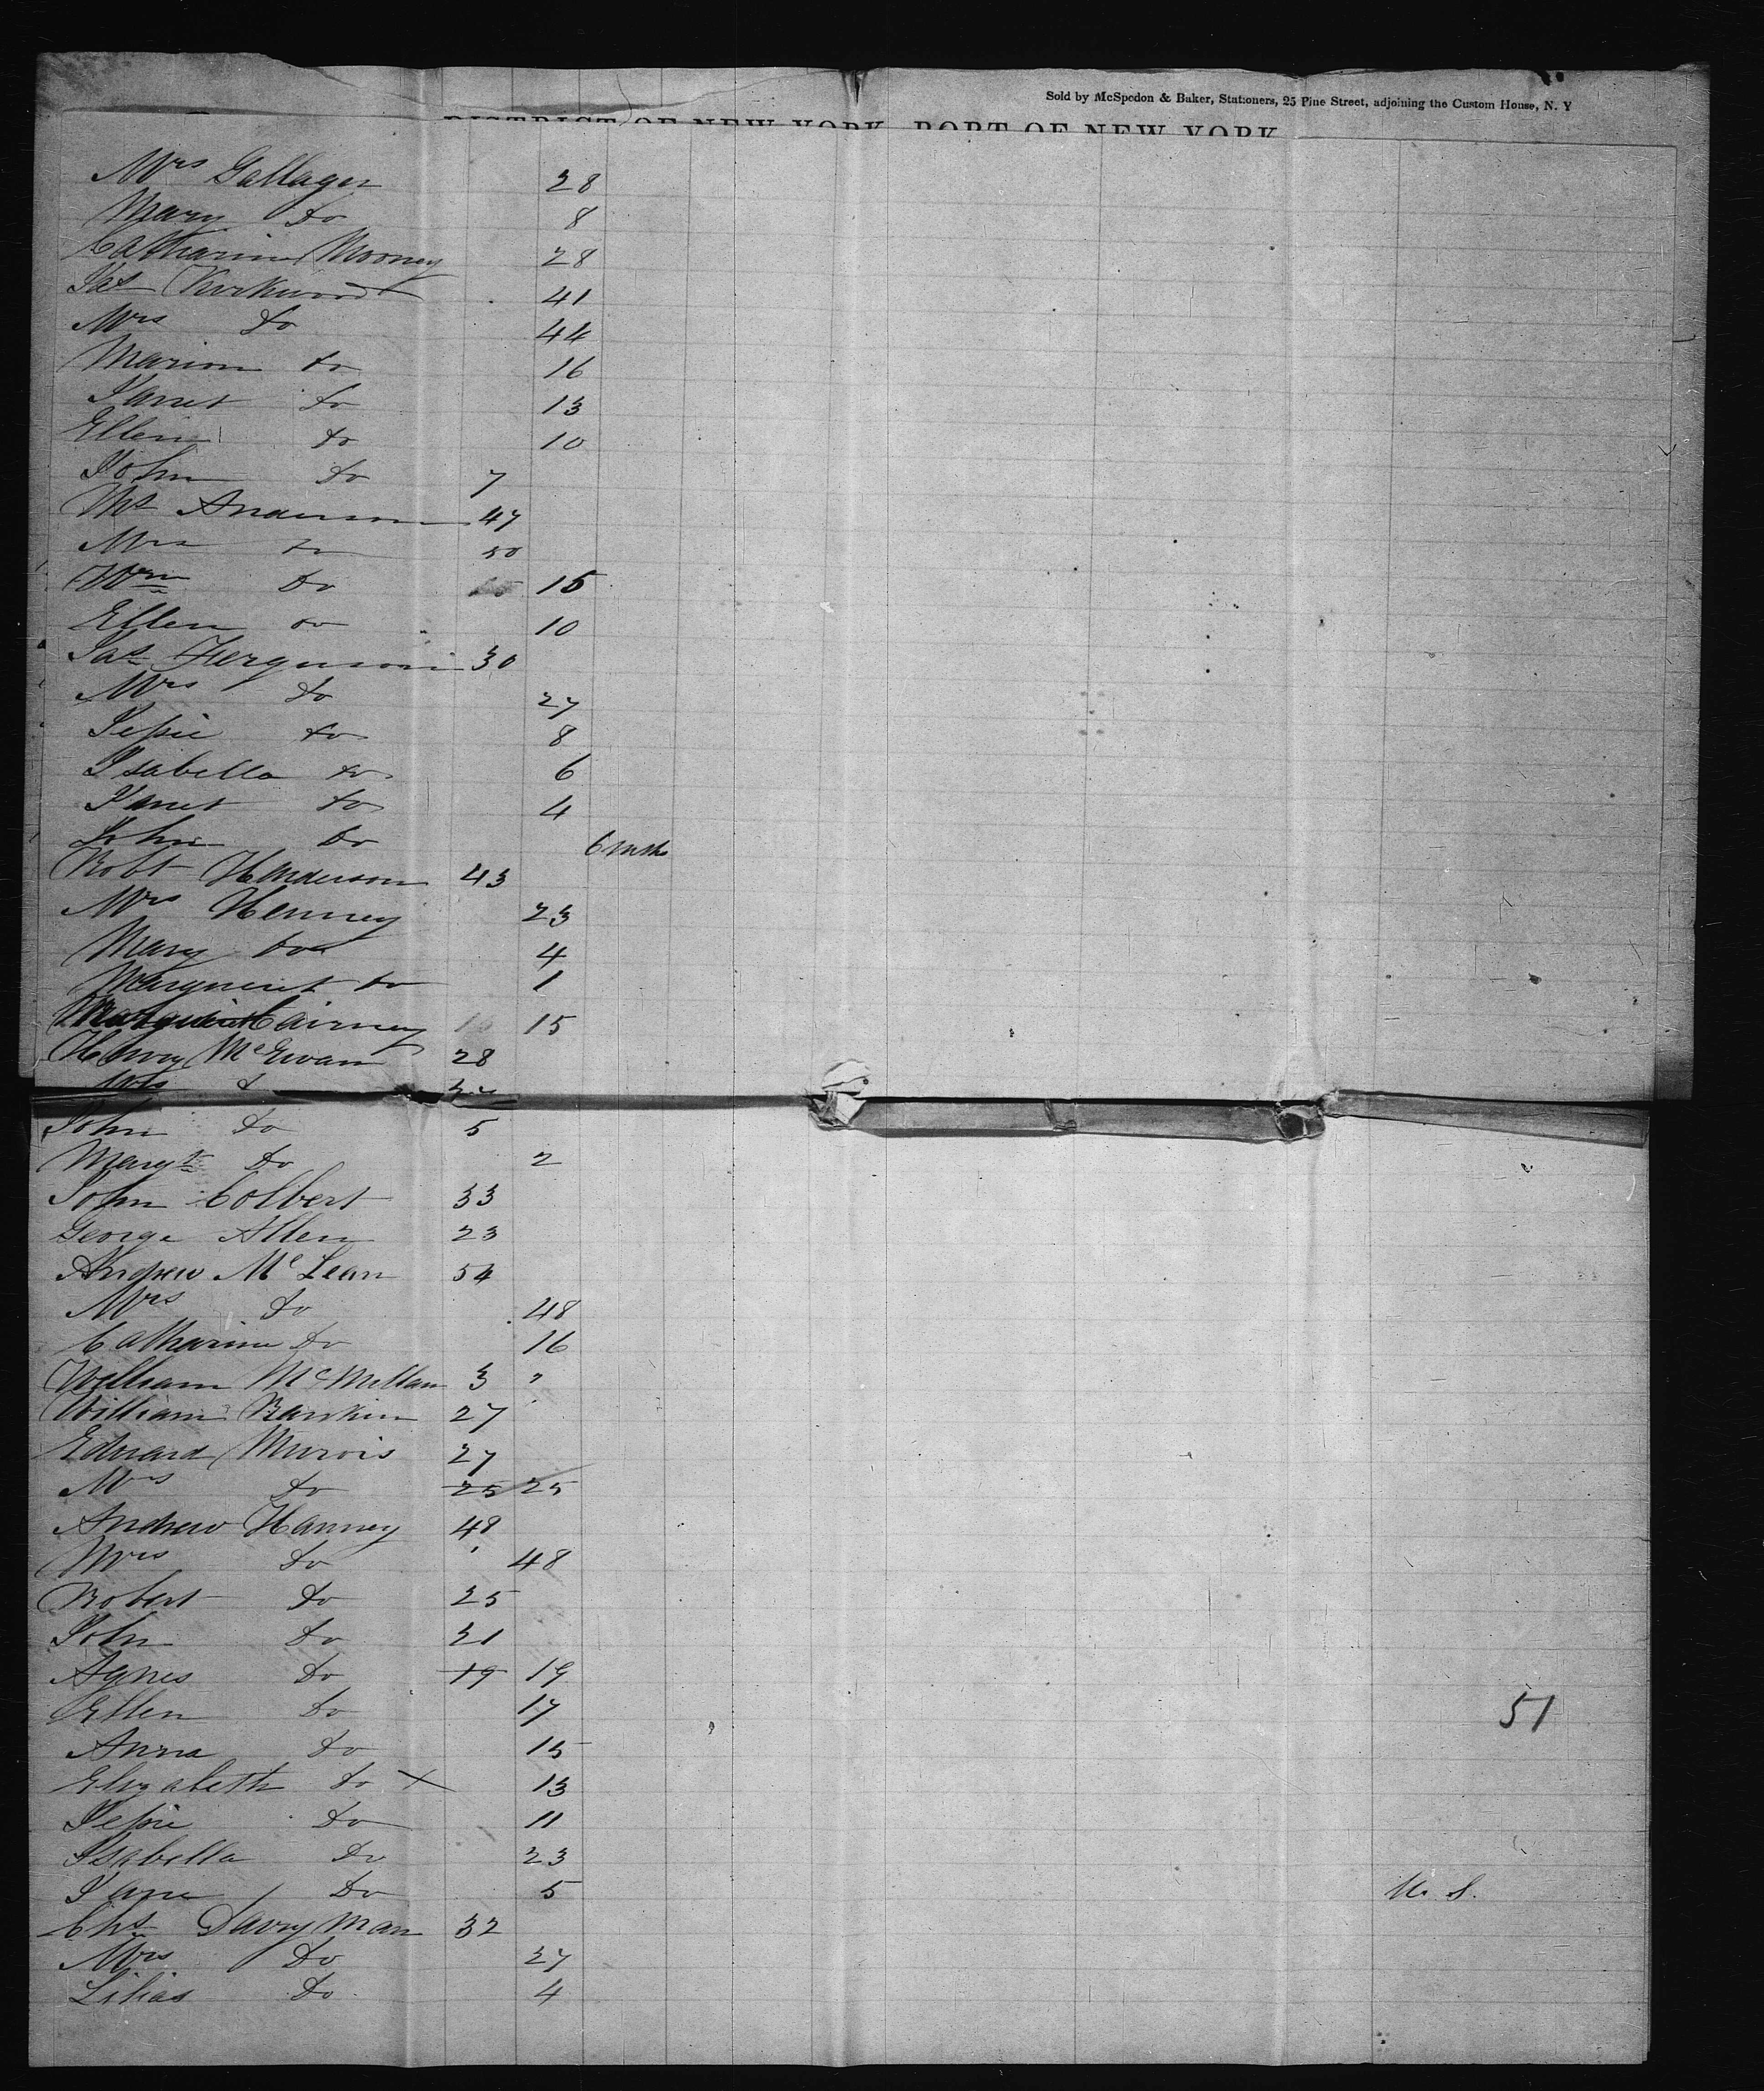 Sold by McSpedon & Baker, Stationers, 25 Pine Street, adjoining the Custom House, N. Y
DISTRICT OF NEW YORK, PORT OF NEW YORK
Mrs Gallager 28
Mary Do 8
Catharine Mooney 28
Jas Kirkwood 41
Mrs Do 44
Marion Do 16
Janet Do 13
Ellen Do 10
John Do 7
Ths Anderson 47
Mrs Do 50
Wm Do 15 15
Ellen Do 10
Jas Ferguson 30
Mrs Do 27
Jessie Do 8
Isabella Do 6
Janet Do 4
John Do 6 mths
Robt Henderson 43
Mrs Henney 23
Mary Do 4
Marguerit Do 1
Cairney 15
Henry McEwan 28
Mrs
John Do 5
Margt Do 2
John Colbert 33
George Allen 23
Andrew McLean 54
Mrs Do 48
Catharine Do 16
William McMillan 3 "
William Rankin 27
Edward Murois 27
Mrs Do 25 25
Andrew Hanney 48
Mrs Do 48
Robert Do 25
John Do 21
Agnes Do 19 19
Ellen Do 17
51
Anna Do 15
Elizabeth Do x 13
Jessie Do 11
Isabella Do 23
Jane Do 5 U. S.
Chs Darryman 32
Mrs Do 27
Lilias Do 4